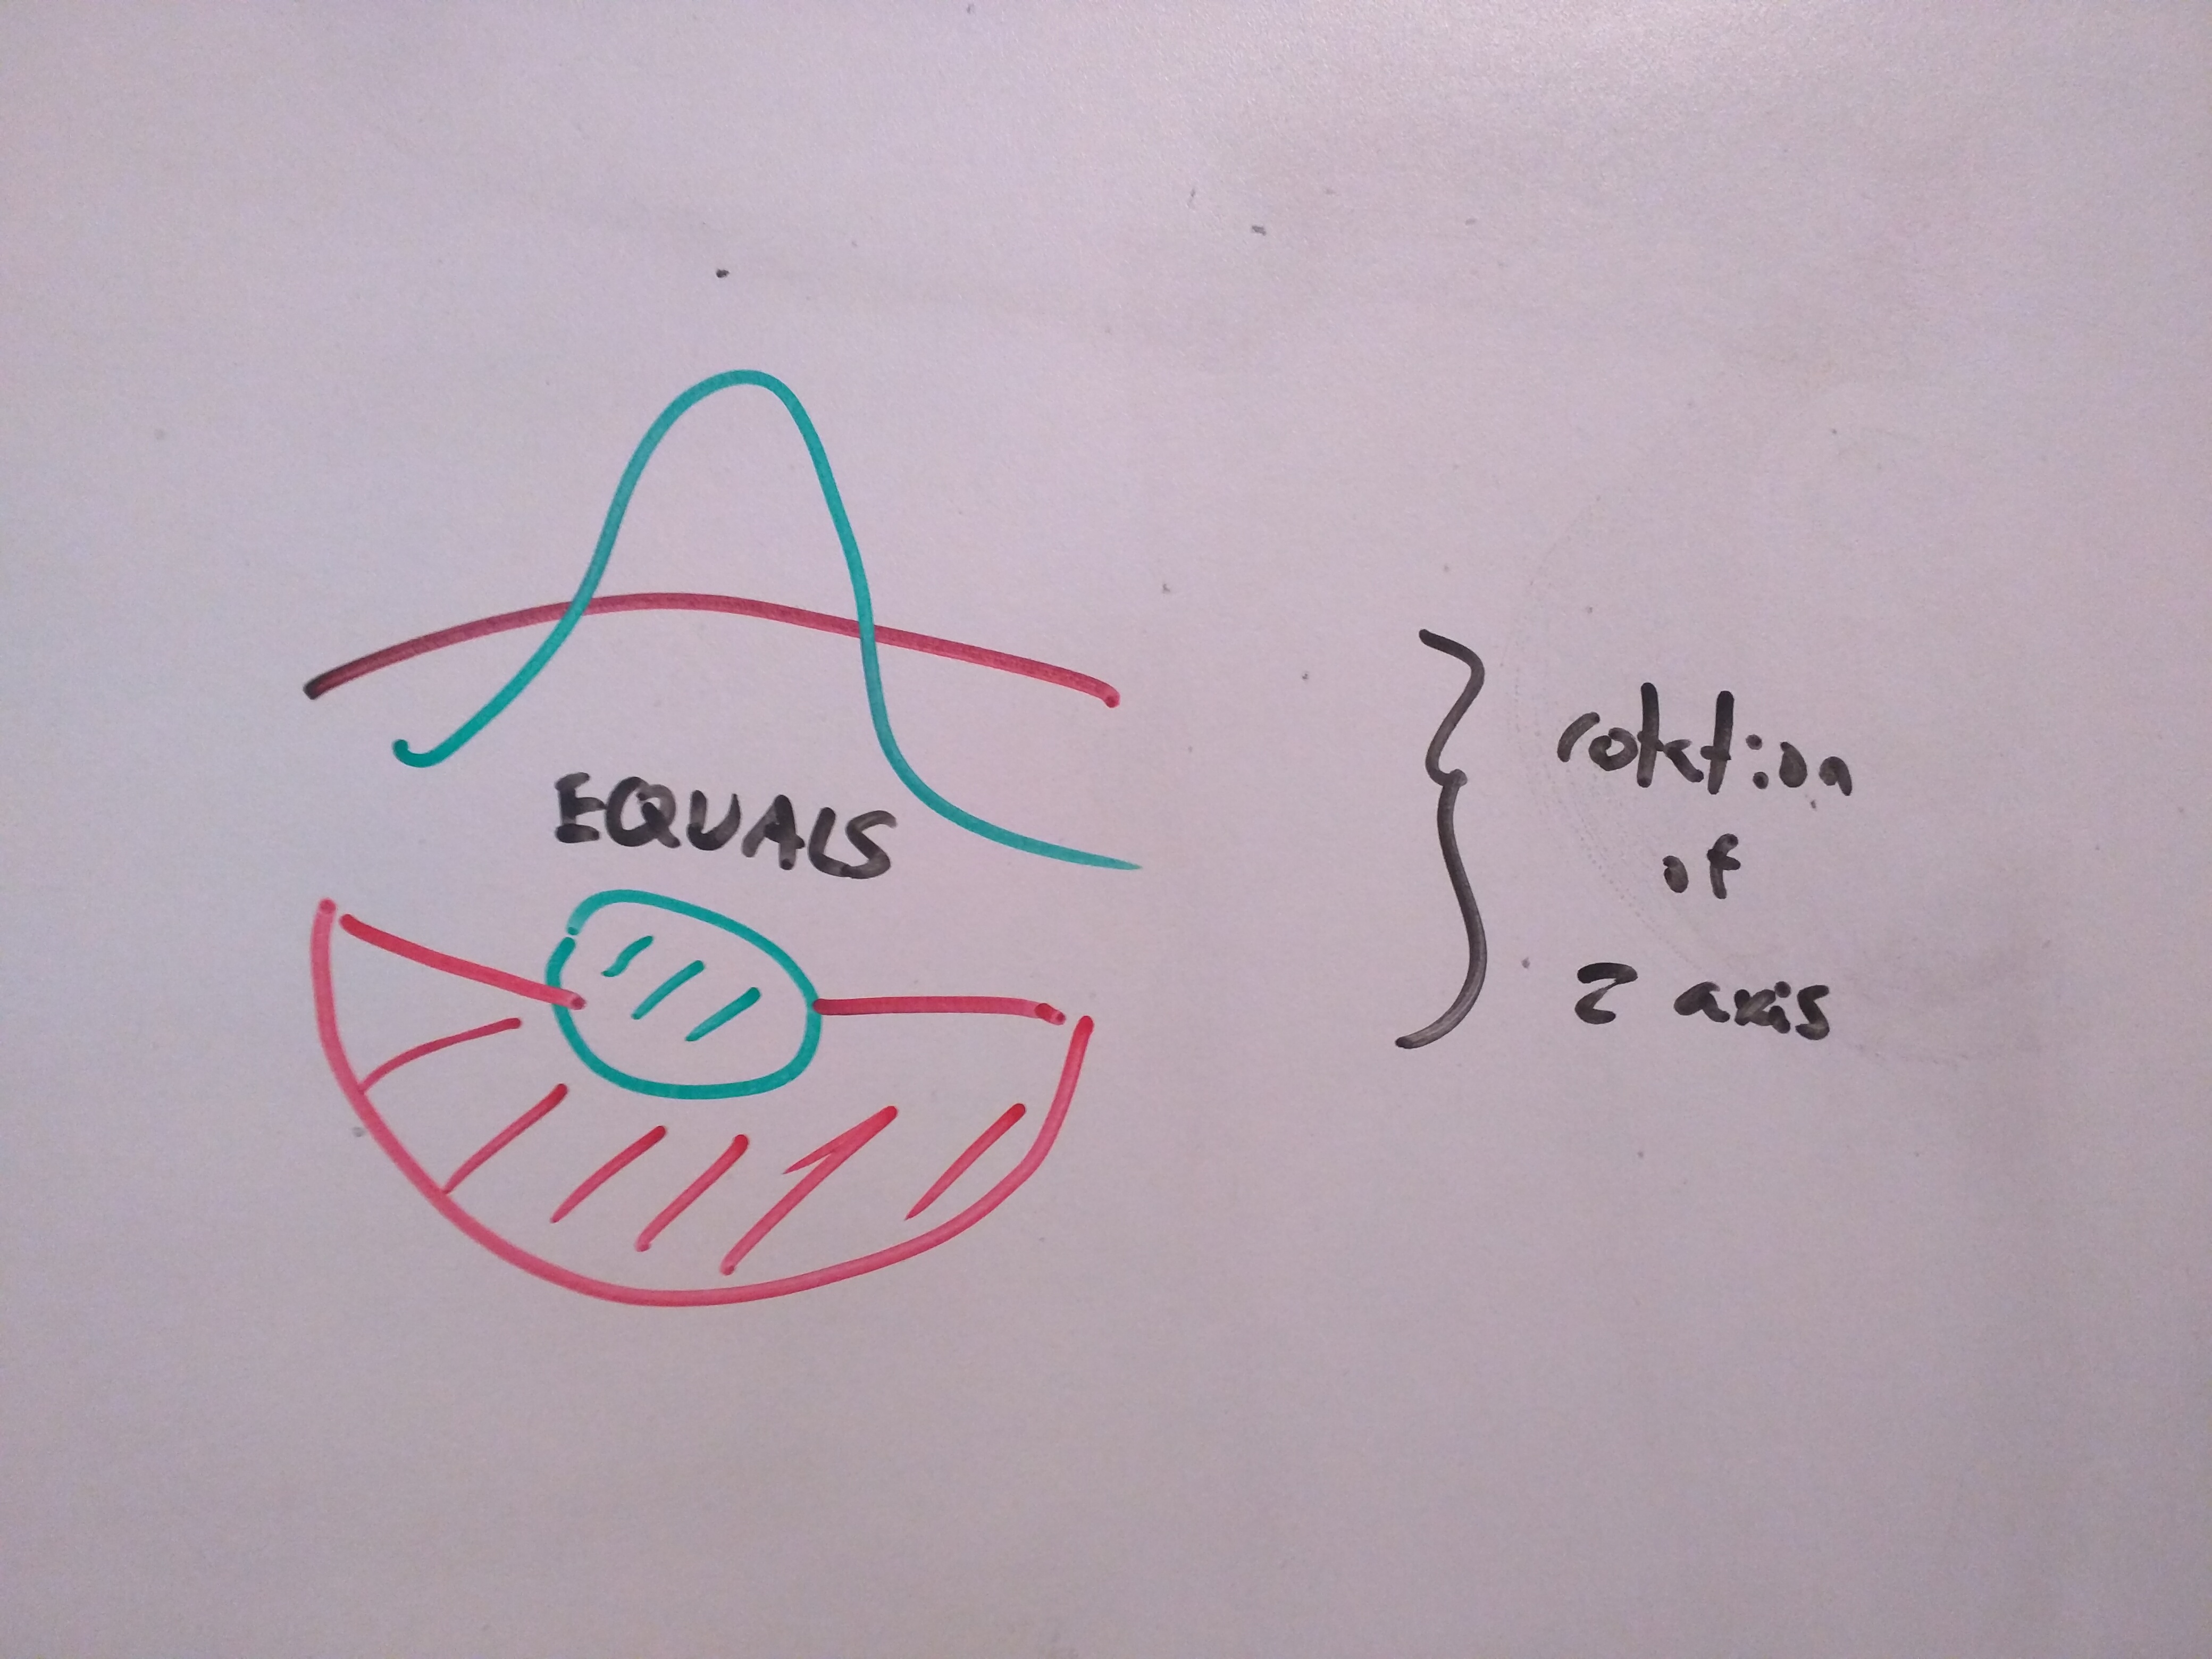 EQUALS
rotation
of
Z axis